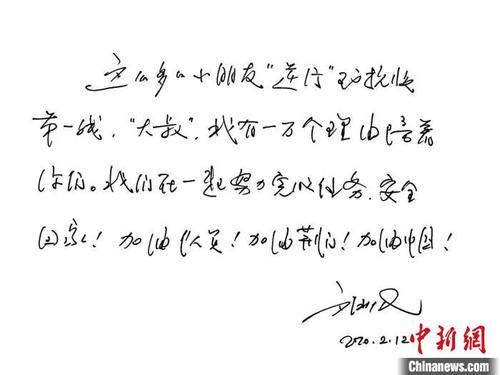 这么多的小朋友“逆行”到抗疫
第一线，“大叔”，我有一万个理由陪着
你们。我们在一起努力完成任务、安全
回家！加油队员！加油荆门！加油中国！
2020.2.12
中新網
Chinanews.com